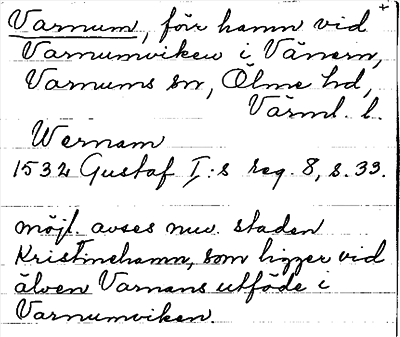 Varnum, förr hamn vid +
Varnumviken i Vänern,
Varnums sn, Ölme hd,
Värml. l.
Wernam
1532 Gustaf I:s reg. 8, s. 33.
möjl. avses nuv. staden
Kristinehamn, som ligger vid
älven Varnans utflöde i
Varnumviken.